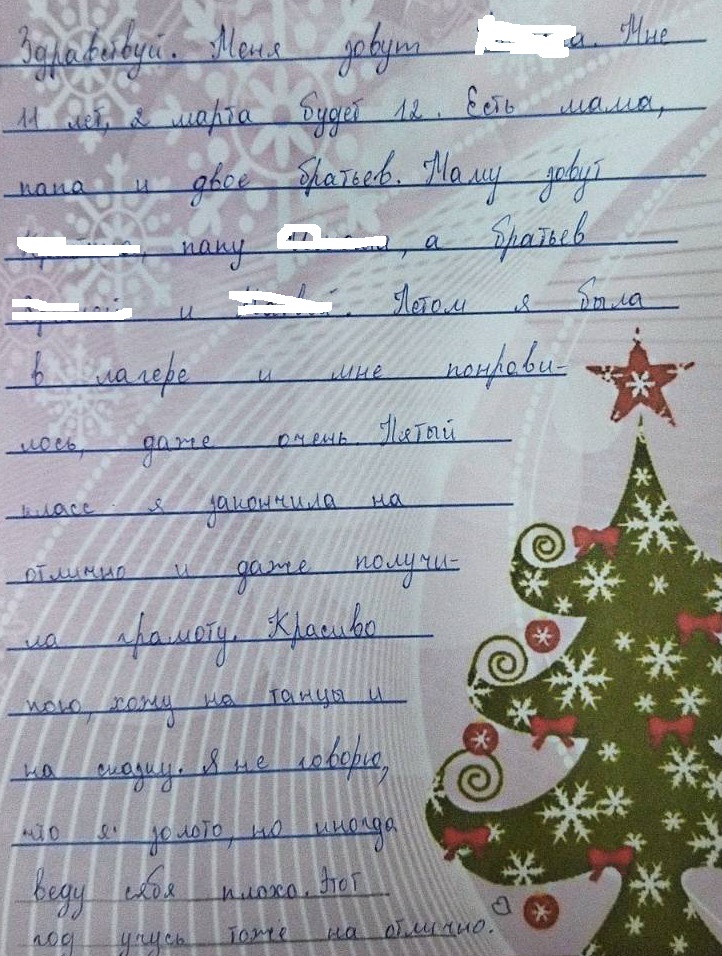 Здравствуй. Меня зовут а. Мне
11 лет, 2 марта будет 12. Есть мама,
папа и двое братьев. Маму зовут
, папу , а братьев
и . Летом я была
в лагере и мне понрави-
лось, даже очень. Пятый
класс я закончила на
отлично и даже получи-
ла грамоту. Красиво
пою, хожу на танцы и
на . Я не говорю,
что я золото, но иногда
веду сябя плохо. Этот
год учусь тоже на отлично.